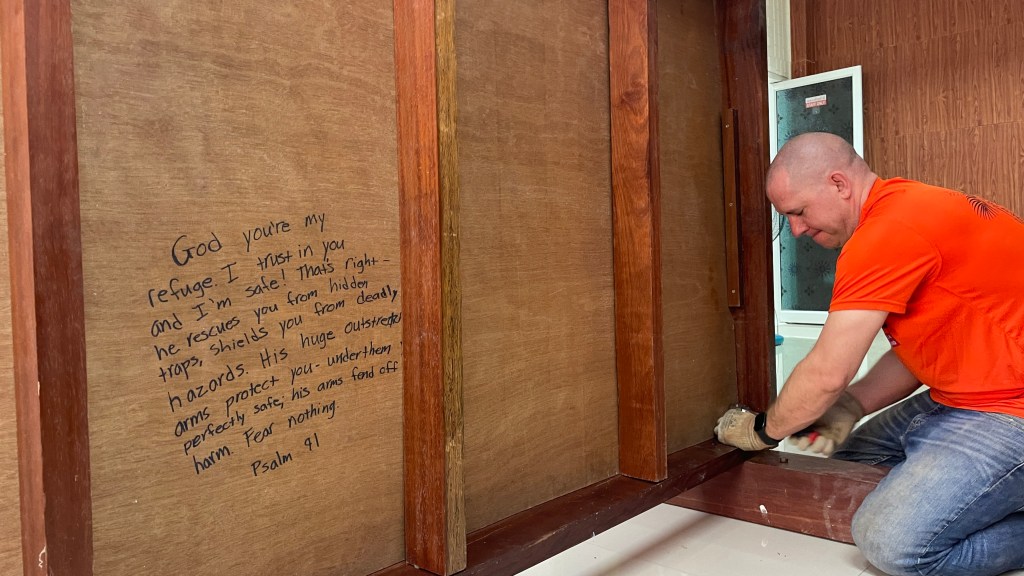 God you're my
refuge. I trust in you
and I'm safe! That's right -
he rescues you from hidden
traps, shields you from deadly
hazards. His huge outstretched
arms protect you - under them
perfectly safe; his arms fend off
harm. Fear nothing.
Psalm 91